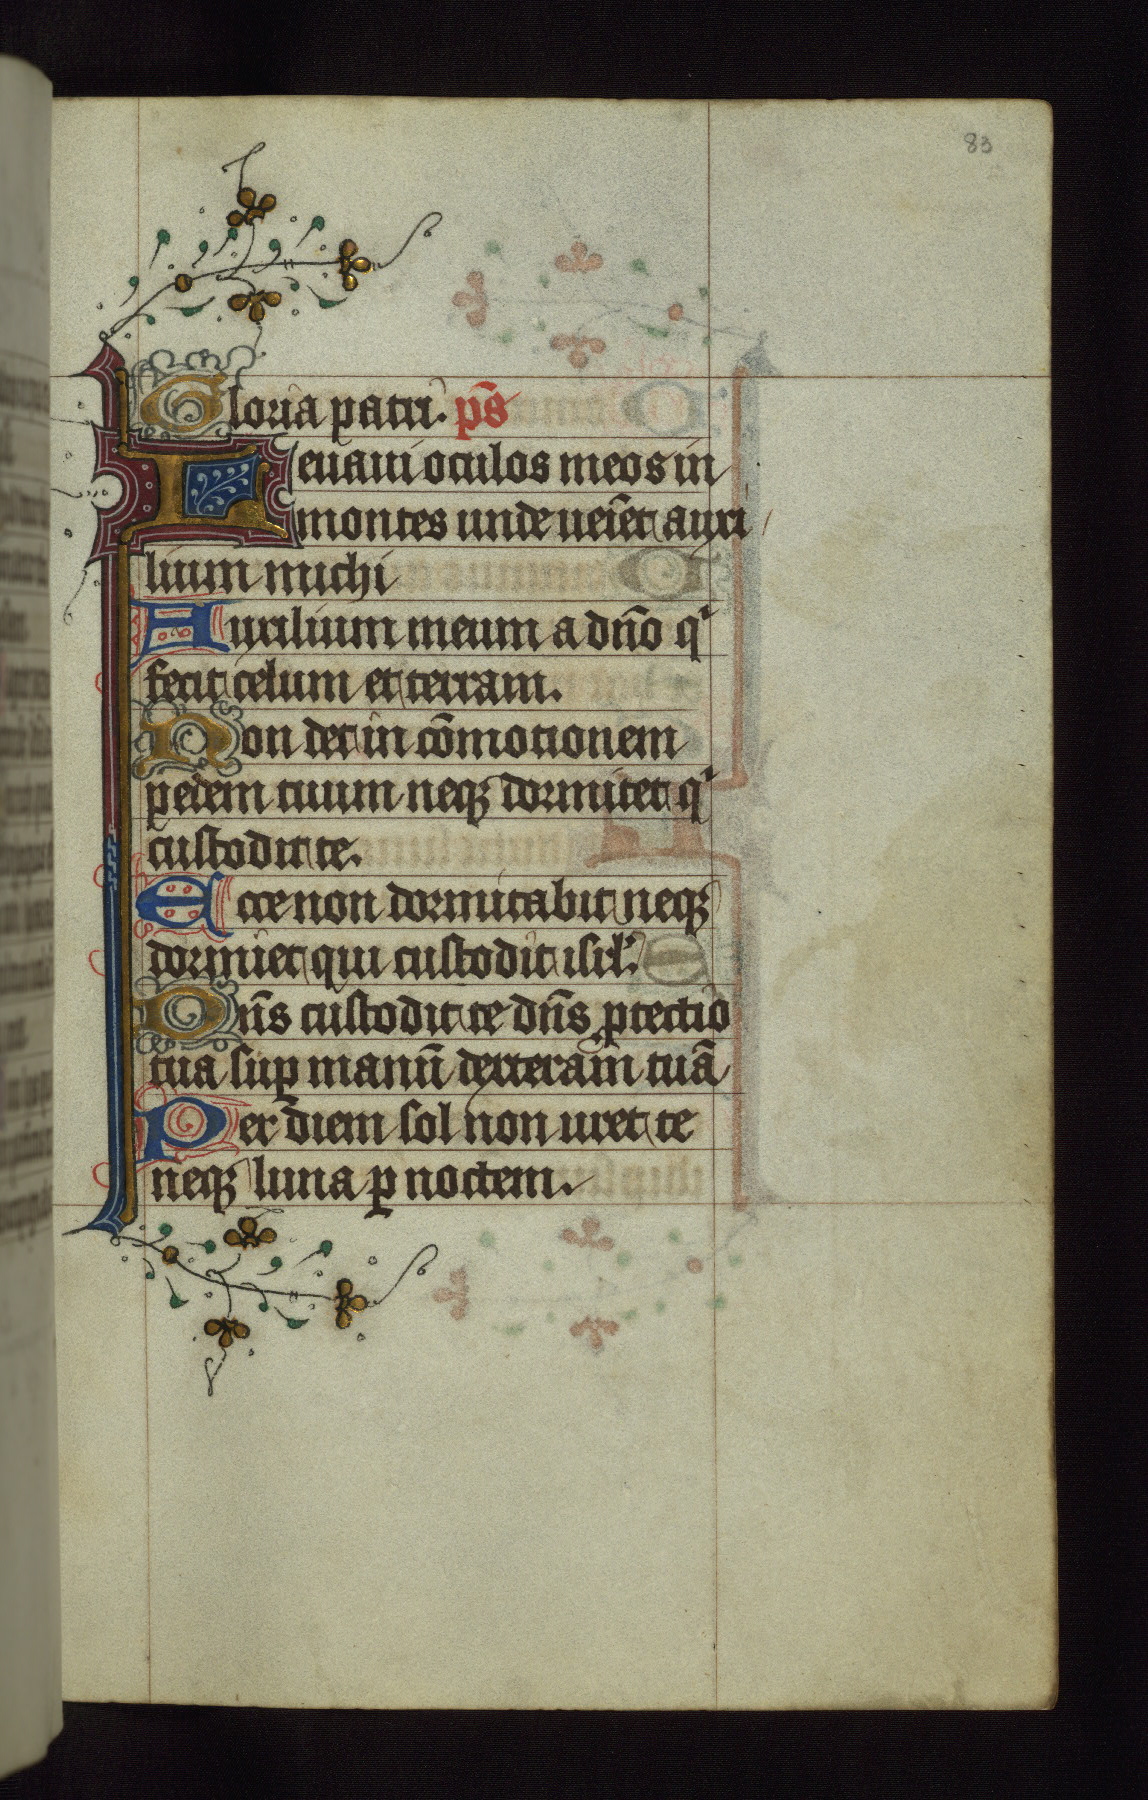 83
Gloria patri. ps̄
Leuaui oculos meos in
montes unde uēiet auxi
lium michi
Auxilium meum a dn̄o qⁱ
fecit celum et terram.
Non det in cōmotionem
pedem tuum neqꝫ dormitet qⁱ
custodit te.
Ecce non dormitabit neqꝫ
dormiet qui custodit isrl'.
Dn̄s custodit te dn̄s ꝓtectio
tua suꝑ manū dexteram tuā
Per diem sol non uret te
neqꝫ luna ꝑ noctem.